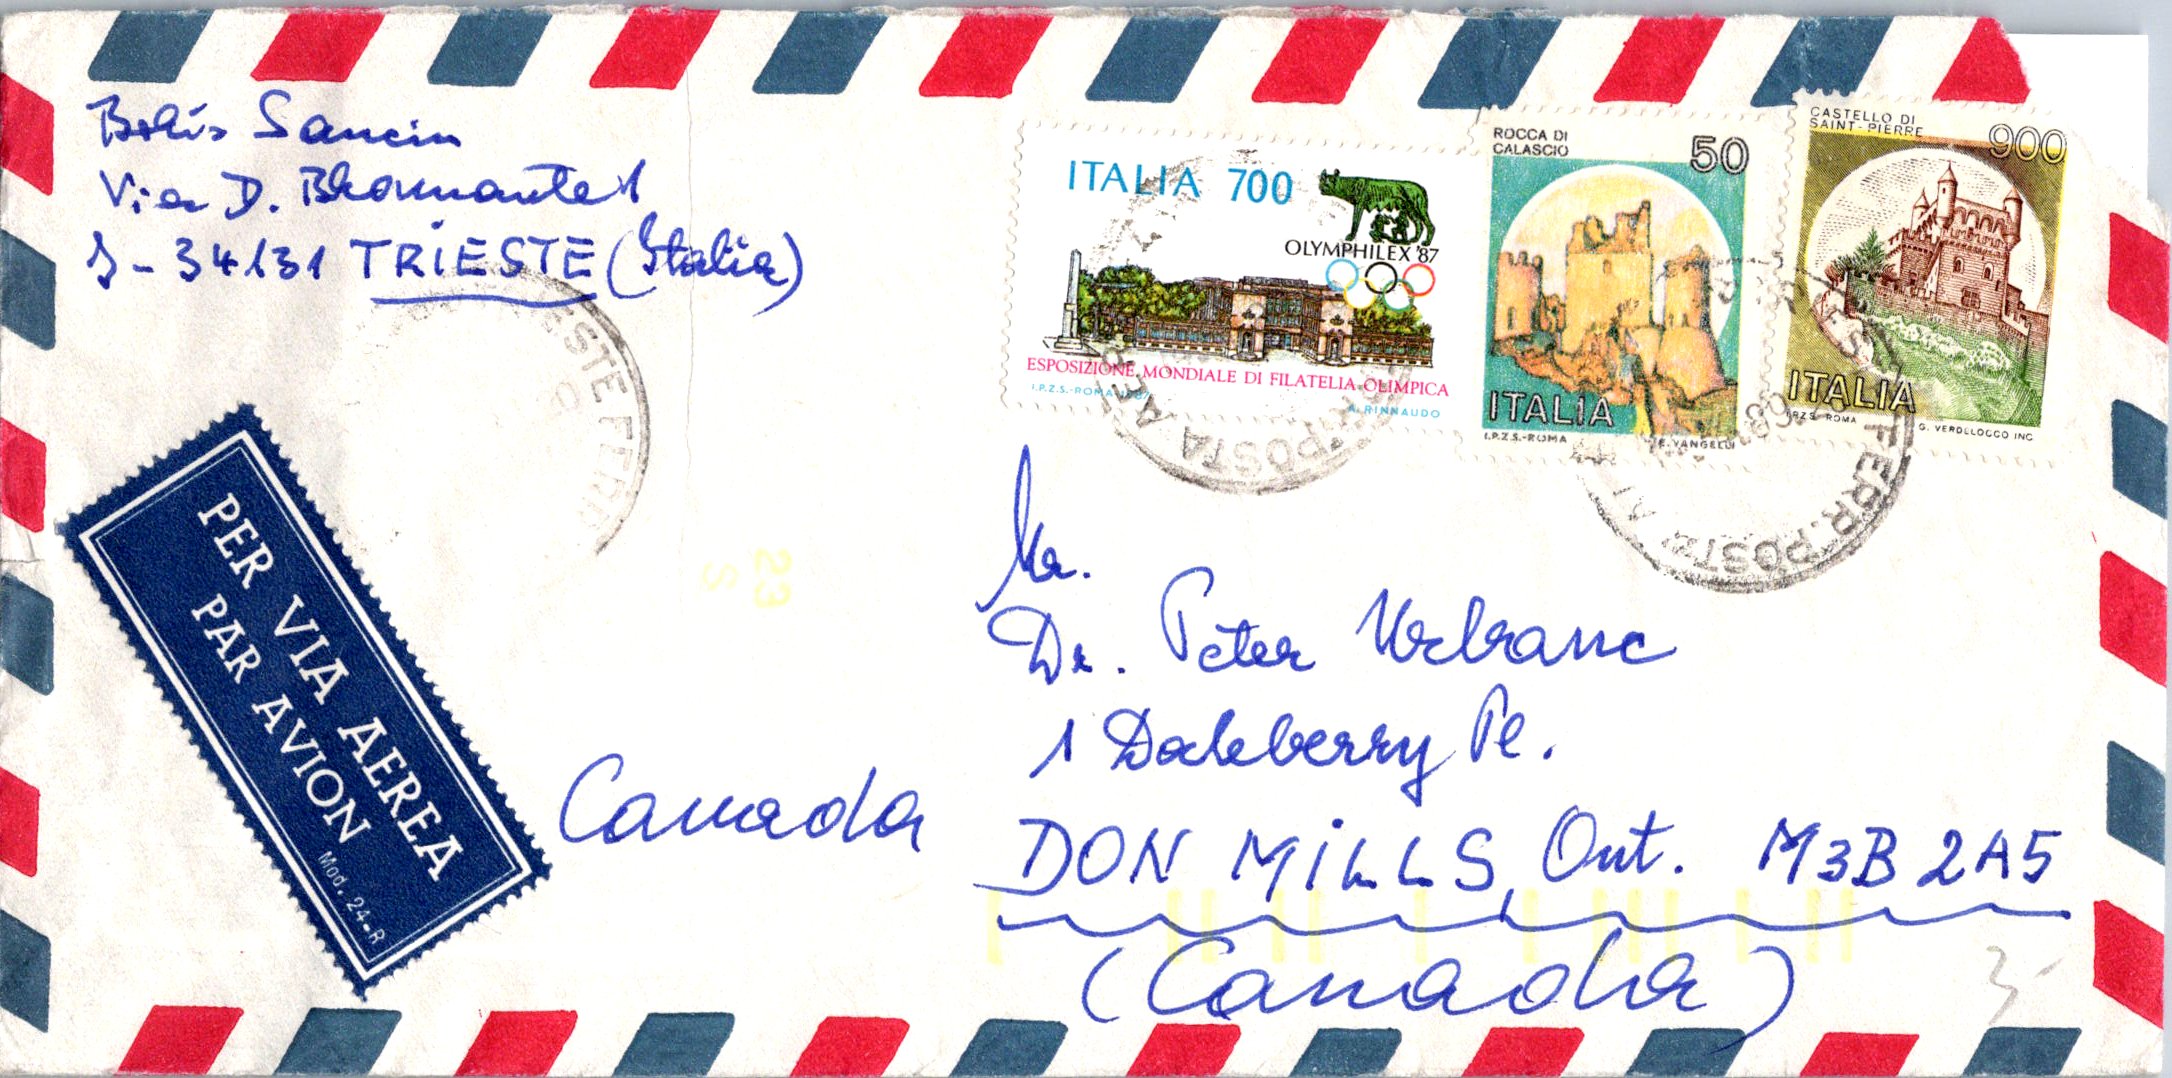 Boris Sancin
Via D. Bramante 1
I-34131 TRIESTE (Italia)
ITALIA 700
OLYMPHILEX '87
ESPOSIZIONE MONDIALE DI FILATELIA OLIMPICA
I.P.Z.S.-ROMA-1987
A. RINNAUDO
ROCCA DI
CALASCIO
50
ITALIA
I.P.Z.S.-ROMA
E. VANGELLI
CASTELLO DI
SAINT-PIERRE
900
ITALIA
I.P.Z.S. ROMA
G. VEROLLOCCO INC.
FERR. POSTA
PER VIA AEREA
PAR AVION
Mod. 24-R
23
S
Mr.
Dr. Peter Urbanc
1 Daleberry Pl.
Canada
DON MILLS, Ont. M3B 2A5
(Canada)
3-